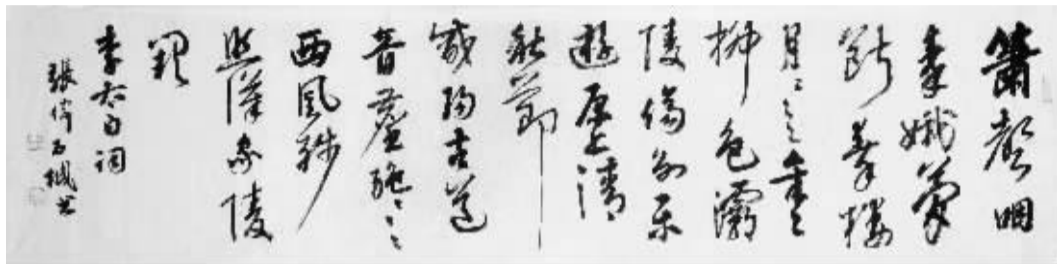 簫聲咽
秦娥夢
斷秦樓
月〻〻〻年〻
柳色灞
陵傷別樂
遊原上清
秋節
咸陽古道
音塵絕〻〻
西風殘
照漢家陵
闕
李太白詞
張